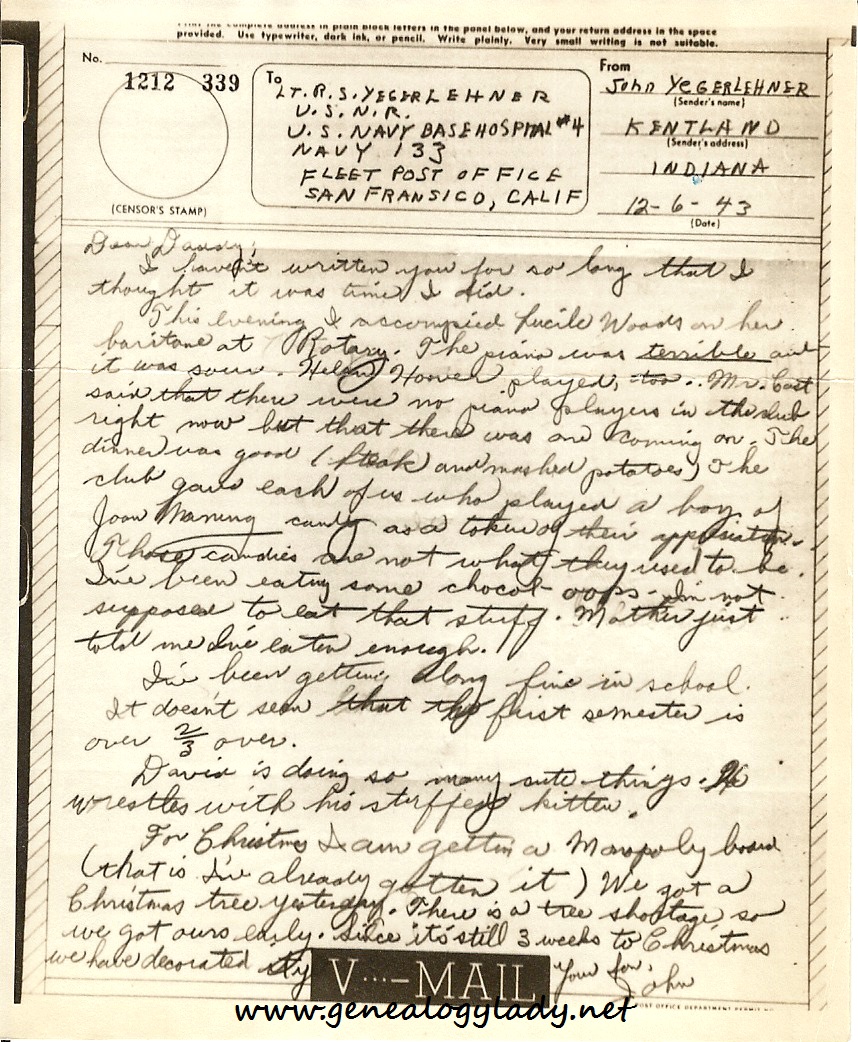 Print the complete address in plain block letters in the panel below, and your return address in the space
provided. Use typewriter, dark ink, or pencil. Write plainly. Very small writing is not suitable.
No.
1212 339
(CENSOR'S STAMP)
To
LT. R. S. YEGERLEHNER
U. S. N. R.
U. S. NAVY BASE HOSPITAL #4
NAVY 133
FLEET POST OFFICE
SAN FRANSICO, CALIF
From
John YEGERLEHNER
(Sender's name)
KENTLAND
(Sender's address)
INDIANA
12-6-43
(Date)
Dear Daddy,
I haven't written you for so long that I
thought it was time I did.
This evening I accompied Lucile Woods on her
baritone at Rotary. The piano was terrible and
it was sour. Helen Hoover played, too. Mr. Cast
said that there were no piano players in the club
right now but that there was one coming on. The
dinner was good (steak and mashed potatoes) The
club gave each of us who played a box of
Joan Maning candy as a token of their appreciation.
Those candies are not what they used to be.
I've been eating some chocol- oops- I'm not
supposed to eat that stuff. Mother just
told me I've eaten enough.
I've been getting along fine in school.
It doesn't seem that the first semester is
over 2/3 over.
David is doing so many cute things. He
wrestles with his stuffed kitten.
For Christmas I am gettin a Monopoly board
(that is I've already gotten it) We got a
Christmas tree yesterday. There is a tree shortage so
we got ours early. Since it's still 3 weeks to Christmas
we have decorated
V···-MAIL
Your son,
John
POST OFFICE DEPARTMENT PERMIT NO.
www.genealogylady.net